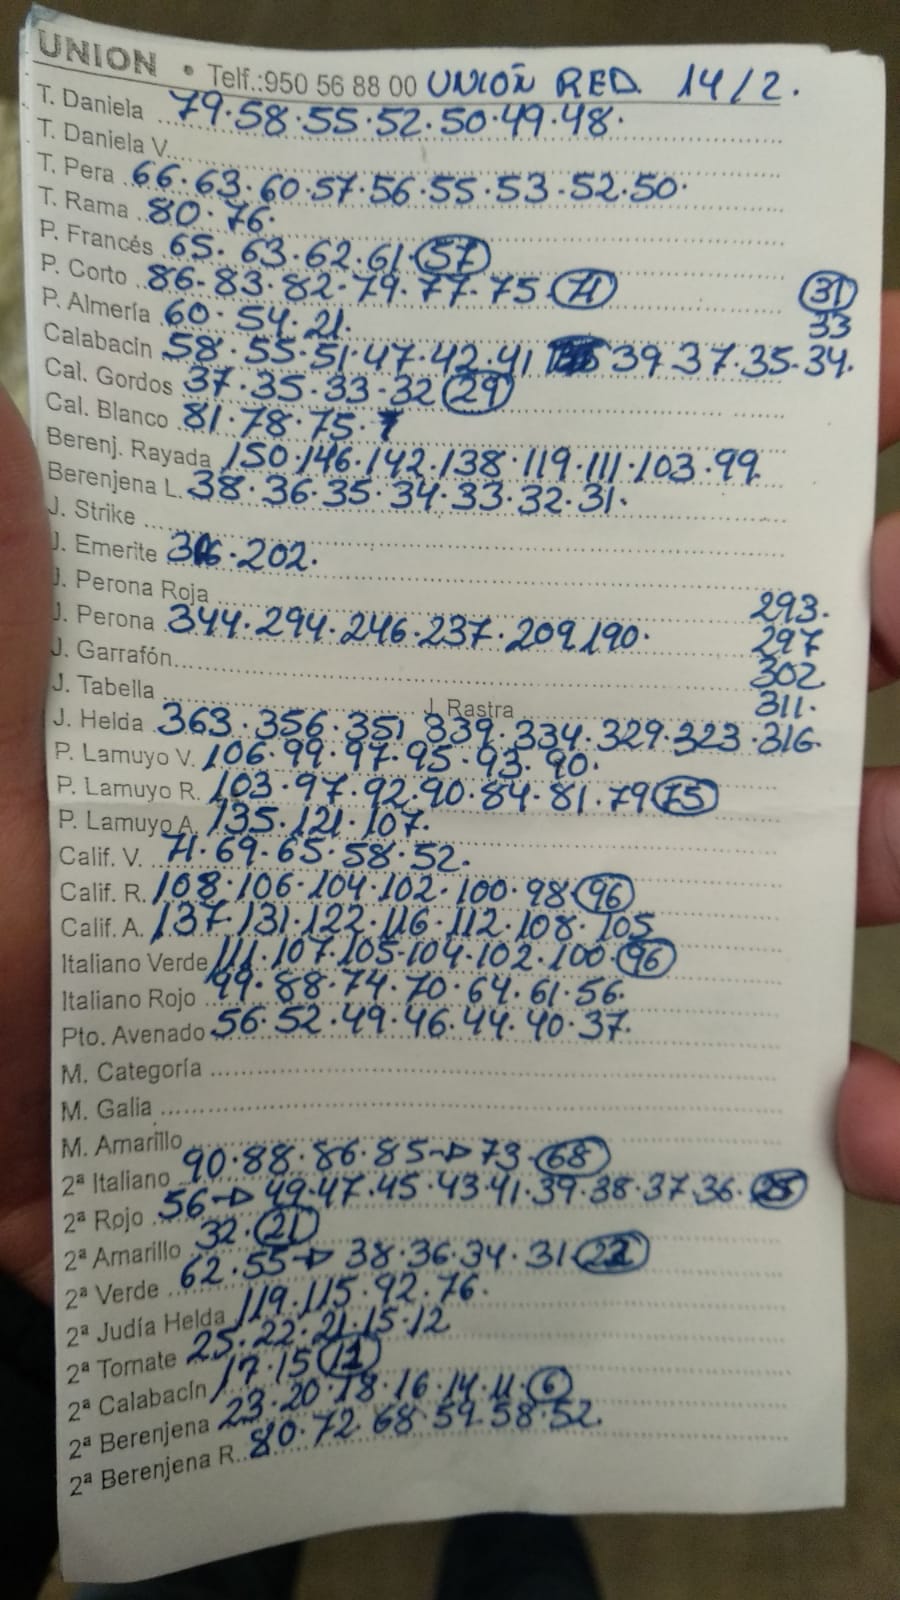 UNION • Telf.:950 56 88 00 UNIOÑ RED. 14/2.
T. Daniela 79.58.55.52.50.49.48.
T. Daniela V.
T. Pera 66.63.60.57.56.55.53.52.50.
T. Rama 80.76.
P. Francés 65.63.62.61.57
P. Corto 86-83.82-79.77-75.71
P. Almería 60.54.21.
31
33
Calabacín 58.55-51.47.42.41 39.37.35-34.
Cal. Gordos 37.35.33-32 29
Cal. Blanco 81.78.75.
Berenj. Rayada 150.146.142.138.119.111.103.99.
Berenjena L. 38.36.35.34.33.32.31.
J. Strike
J. Emerite .202.
J. Perona Roja
J. Perona 344.294.246.237.209.190.
J. Garrafón
293.
297
302
311.
J. Tabella J. Rastra
J. Helda 363.356.351 339.334.329.323.316.
P. Lamuyo V. 106.99.97.95.93.90.
P. Lamuyo R. 103.97.92.90.84.81.79 75
P. Lamuyo A. 135.121.107.
Calif. V. 71.69-65.58.52.
Calif. R. 108.106.104.102.100.98 96
Calif. A. 137.131.122.116.112.108.105
Italiano Verde 111.107.105-104.102.100.96
Italiano Rojo 99.88.74.70.64.61.56.
Pto. Avenado 56.52.49.46.44.40.37.
M. Categoría
M. Galia
M. Amarillo
2ª Italiano 90.88.86.85→73.68
2ª Rojo 56→49.47.45.43.41.39.38.37.36.
32.21
2ª Amarillo 62.55→38.36.34.31
2ª Verde
2ª Judía Helda 119.115.92.76.
2ª Tomate 25.22.21.15.12
2ª Calabacín 17.15
2ª Berenjena 23.20.18.16.14.11.6
2ª Berenjena R. 80.72.68.59.58.52.